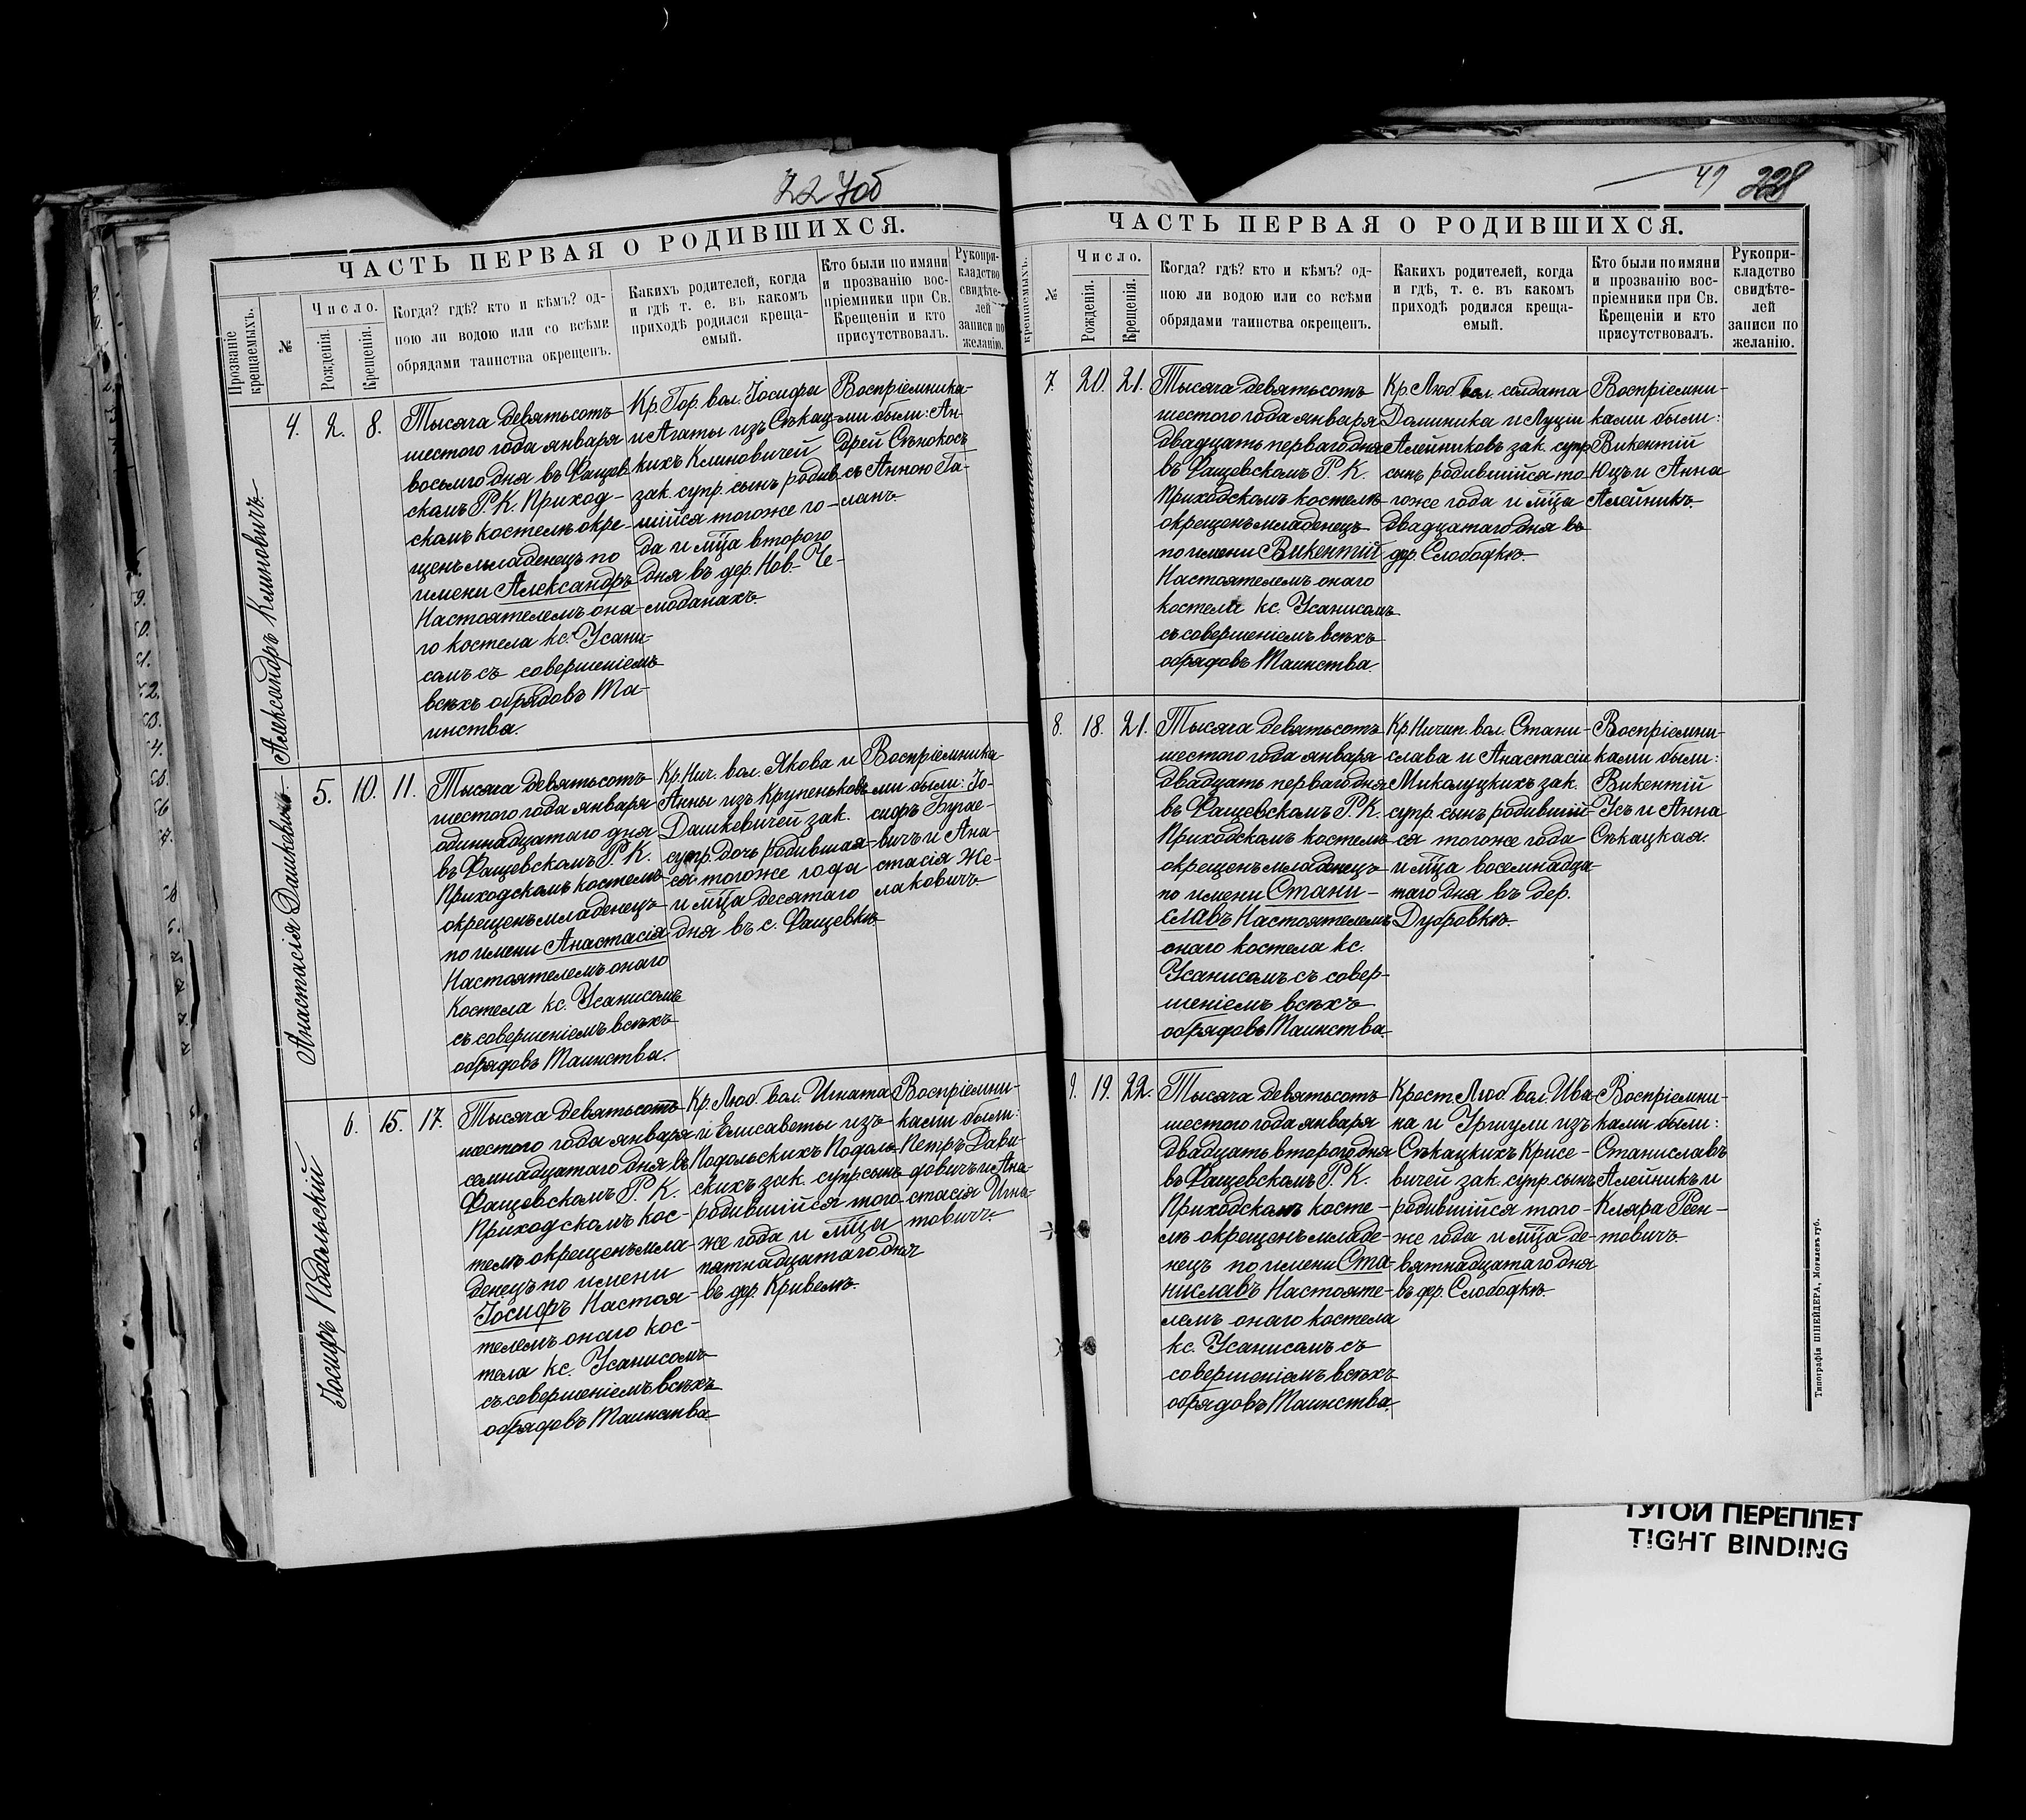 227об
ЧАСТЬ ПЕРВАЯ О РОДИВШИХСЯ.
Прозваніе крещаемыхъ.
№
Число.
Рожденія.
Крещенія.
Когда? гдѣ? кто и кѣмъ? од-
ною ли водою или со всѣми
обрядами таинства окрещенъ.
Какихъ родителей, когда
и гдѣ т. е. въ какомъ
приходѣ родился креща-
емый.
Кто были по имяни
и прозванію вос-
пріемники при Св.
Крещеніи и кто
присутствовалъ.
Рукопри-
кладство
свидѣте-
лей
записи по
желанію.
Александръ Климовичъ.
4. 2. 8.
Тысяча девятьсотъ
шестого года января
восьмого дня въ Фащев
скомъ Р. К. Приход-
скомъ костелѣ окре-
щенъ младенецъ по
имени Александръ
Настоятелемъ она-
го костела кс. Усани-
сомъ съ совершеніемъ
всѣхъ обрядовъ Та-
инства.
Кр. Гор. вол. Іосифа
и Агаты изъ Сѣкац-
кихъ Климовичей
зак. супр. сынъ родив-
шійся тогоже го-
да и мѣца второго
дня въ дер. Нов. Че-
моданахъ.
Воспріемника-
ми были: Ан-
дрей Сѣнокосъ
съ Анною Га-
ланъ
Анастасія Дашкевичъ.
5. 10. 11.
Тысяча девятьсотъ
шестого года января
одиннадцатаго дня
въ Фащевскомъ Р. К.
Приходскомъ костелѣ
окрещенъ младенецъ
по имени Анастасія
Настоятелемъ онаго
Костела кс. Усанисомъ
съ совершеніемъ всѣхъ
обрядовъ Таинства.
Кр. Нич. вол. Якова и
Анны изъ Крупеньковъ
Дашкевичей зак.
супр. дочь родившая-
ся тогоже года
и мѣца десятаго
дня въ с. Фащевкѣ.
Воспріемника
ми были: Іо-
сифъ Бурае-
вичъ и Ана-
стасія Же-
лаковичъ
Іосифъ Подольскій
6. 15. 17.
Тысяча девятьсотъ
шестого года января
семнадцатаго дня въ
Фащевскомъ Р. К.
Приходскомъ кос-
телѣ окрещенъ мла
денецъ по имени
Іосифъ Настоя-
телемъ онаго кос-
тела кс. Усанисомъ
съ совершеніемъ всѣхъ
обрядовъ Таинства
Кр. Люб. вол. Игната
и Елисаветы изъ
Подольскихъ Подоль-
скихъ зак. супр. сынъ
родившійся того
же года и мѣца
пятнадцатаго дня
въ дер. Кривелѣ.
Воспріемни-
ками были:
Петръ Дави-
довичъ и Ана-
стасія Игна-
товичъ.
49 228
ЧАСТЬ ПЕРВАЯ О РОДИВШИХСЯ.
крещаемыхъ.
№
Число.
Рожденія.
Крещенія.
Когда? гдѣ? кто и кѣмъ? од-
ною ли водою или со всѣми
обрядами таинства окрещенъ.
Какихъ родителей, когда
и гдѣ, т. е. въ какомъ
приходѣ родился креща-
емый.
Кто были по имяни
и прозванію вос-
пріемники при Св.
Крещеніи и кто
присутствовалъ.
Рукопри-
кладство
свидѣте-
лей
записи по
желанію.
7. 20. 21.
Тысяча девятьсотъ
шестого года января
двадцать перваго дня
въ Фащевскомъ Р. К.
Приходскомъ костелѣ
окрещенъ младенецъ
по имени Викентій
Настоятелемъ онаго
костела кс. Усанисомъ
съ совершеніемъ всѣхъ
обрядовъ Таинства
Кр. Люб. вол. солдата
Доминика и Луціи
Алейниковъ зак. супр.
сынъ родившійся то-
гоже года и мѣца
двадцатаго дня въ
дер. Слободкѣ.
Воспріемни-
ками были:
Викентій
Юцъ и Анна
Алейникъ.
8. 18. 21.
Тысяча девятьсотъ
шестого года января
двадцать перваго дня
въ Фащевскомъ Р. К.
Приходскомъ костелѣ
окрещенъ младенецъ
по имени Стани-
славъ Настоятелемъ
онаго костела кс.
Усанисомъ съ совер-
шеніемъ всѣхъ
обрядовъ Таинства.
Кр. Ничип. вол. Стани-
слава и Анастасіи
Миколуцкихъ зак.
супр. сынъ родившій-
ся тогоже года
и мѣца восемнадца
таго дня въ дер.
Дубровкѣ.
Воспріемни-
ками были:
Викентій
Усъ и Анна
Сѣкацкая.
9. 19. 22.
Тысяча девятьсотъ
шестого года января
двадцать второго дня
въ Фащевскомъ Р. К.
Приходскомъ косте-
лѣ окрещенъ младе-
нецъ по имени Ста-
ниславъ Настояте-
лемъ онаго костела
кс. Усанисомъ съ
совершеніемъ всѣхъ
обрядовъ Таинства.
Крест. Люб вол. Ива
на и Уршули изъ
Сѣкацкихъ Крисе-
вичей зак. супр. сынъ
родившійся того-
же года и мѣца де-
вятнадцатаго дня
въ дер. Слободкѣ.
Воспріемни-
ками были:
Станиславъ
Алейникъ и
Кляра Реен-
товичъ
Типографія ШНЕЙДЕРА, Могилевъ губ.
ТУГОЙ ПЕРЕПЛЕТ
TIGHT BINDING